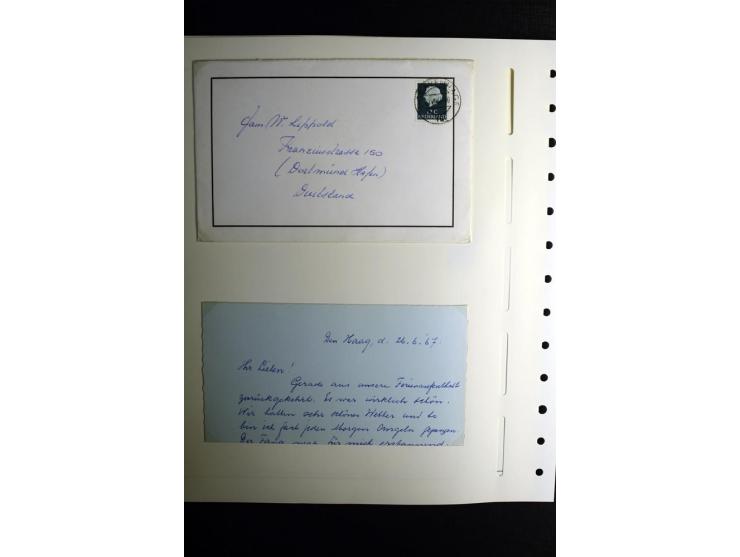 Fam. W. Leppold
Franziusstrasse 150
(Dortmund Hafen)
Duitsland
NEDERLAND
Den Haag, d. 26.6.'67
Ihr Lieben!
Gerade aus unsere Ferienaufenthalt
zurückgekehrt. Es war wirklich schön.
Wir hatten sehr schönes Wetter und so
bin ich fast jeden Morgen Angeln gegangen.
Der Fang war für mich erstaunend